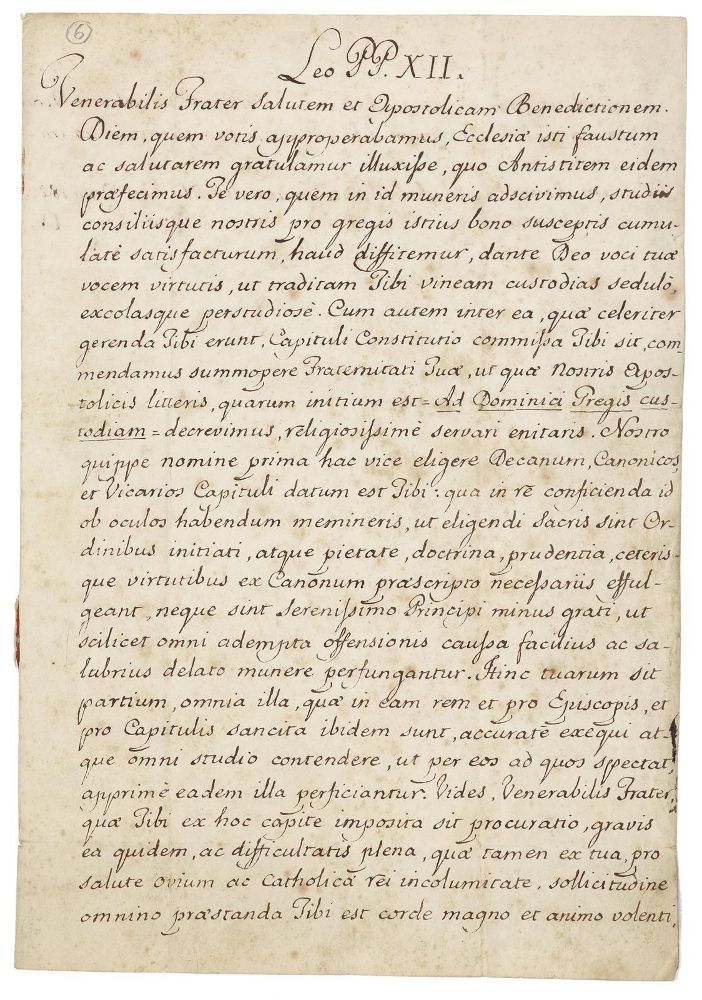 6
Leo PP. XII.
Venerabilis Frater Salutem et Apostolicam Benedictionem.
Diem, quem votis approperabamus, Ecclesiæ isti faustum
ac salutarem gratulamur illuxiſse, quo Antistitem eidem
præfecimus. Te vero, quem in id muneris adscivimus, studiis
consiliisque nostris pro gregis istius bono susceptis cumu-
latè satisfacturum, haud diffitemur, dante Deo voci tuæ
vocem virtutis, ut traditam Tibi vineam custodias sedulò,
excolasque perstudiosè. Cum autem inter ea, quæ celeriter
gerenda Tibi erunt, Capituli Constitutio commiſsa Tibi sit, com-
mendamus summopere Fraternitati Tuæ, ut quæ Nostris Apos-
tolicis litteris, quarum initium est = Ad Dominici Gregis cus-
todiam = decrevimus, religiosiſsimè servari enitaris. Nostro
quippe nomine prima hac vice eligere Decanum, Canonicos,
et Vicarios Capituli datum est Tibi: qua in rē conficienda id
ob oculos habendum memineris, ut eligendi Sacris sint Or-
dinibus initiati, atque pietate, doctrina, prudentia, ceteris-
que virtutibus ex Canonum præscripto neceſsariis efful-
geant, neque sint Sereniſsimo Principi minus grati, ut
scilicet omni adempta offensionis cauſsa facilius ac sa-
lubrius delato munere perfungantur. Hinc tuarum sit
partium, omnia illa, quæ in eam rem et pro Episcopis, et
pro Capitulis sancita ibidem sunt, accuratè exequi at-
que omni studio contendere, ut per eos ad quos spectat,
apprimè eadem illa perficiantur. Vides, Venerabilis Frater,
quæ Tibi ex hoc capite imposita sit procuratio, gravis
ea quidem, ac difficultatis plena, quæ tamen ex tua, pro
salute ovium ac Catholicæ rēi incolumitate, sollicitudine
omnino præstanda Tibi est corde magno et animo volenti.